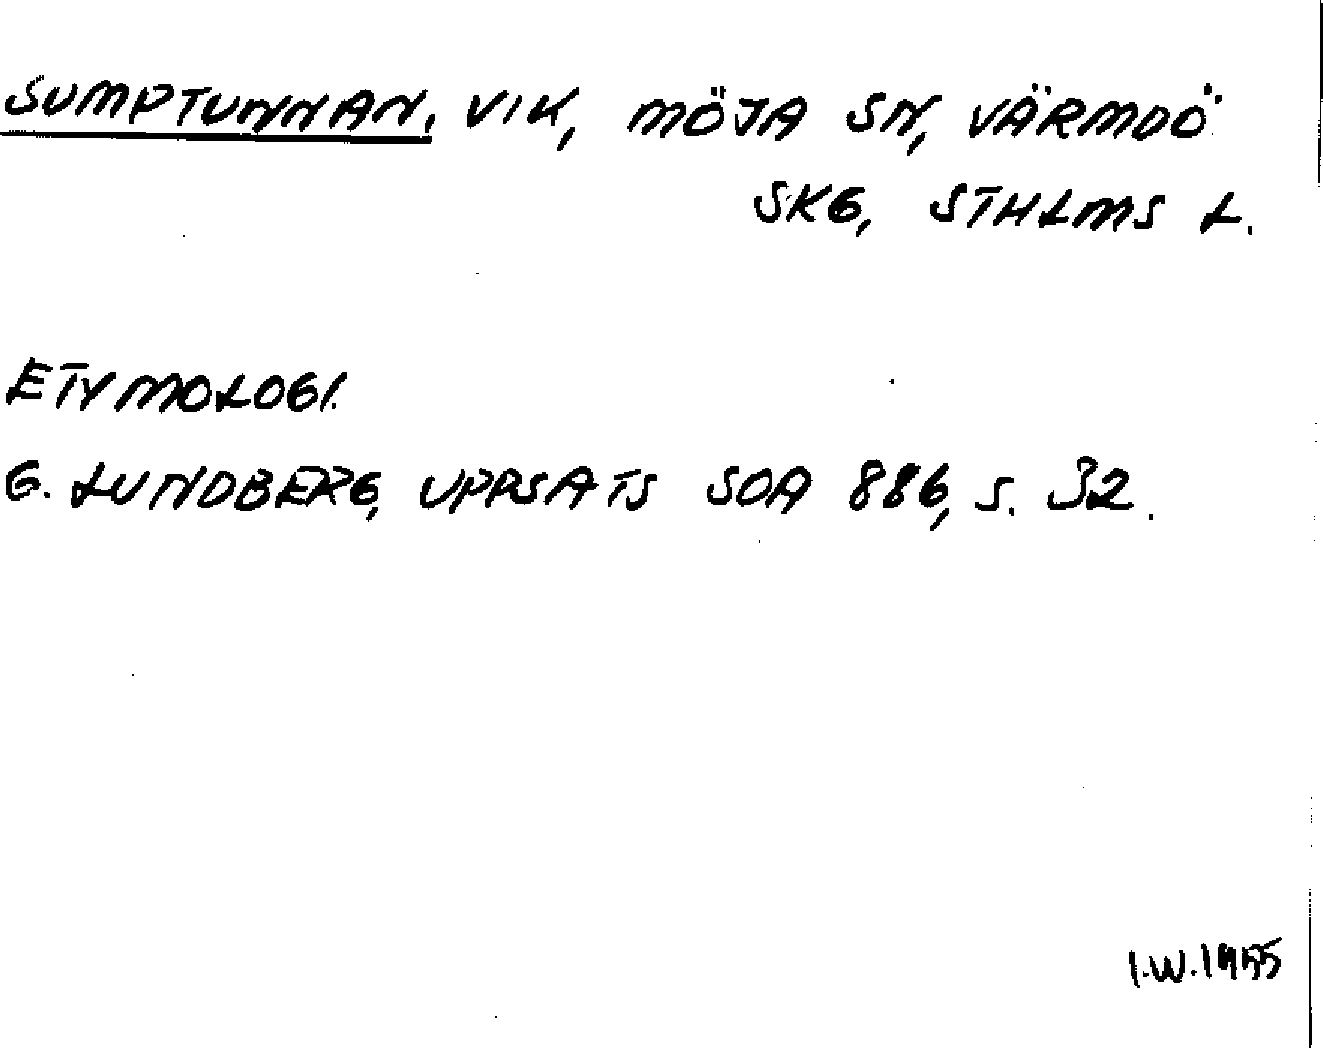 SUMPTUNNAN, VIK, MÖJA SN, VÄRMDÖ
SKG, STHLMS L.
ETYMOLOGI.
G. LUNDBERG, UPPSATS SOA 886, S. 32.
I.W. 1955